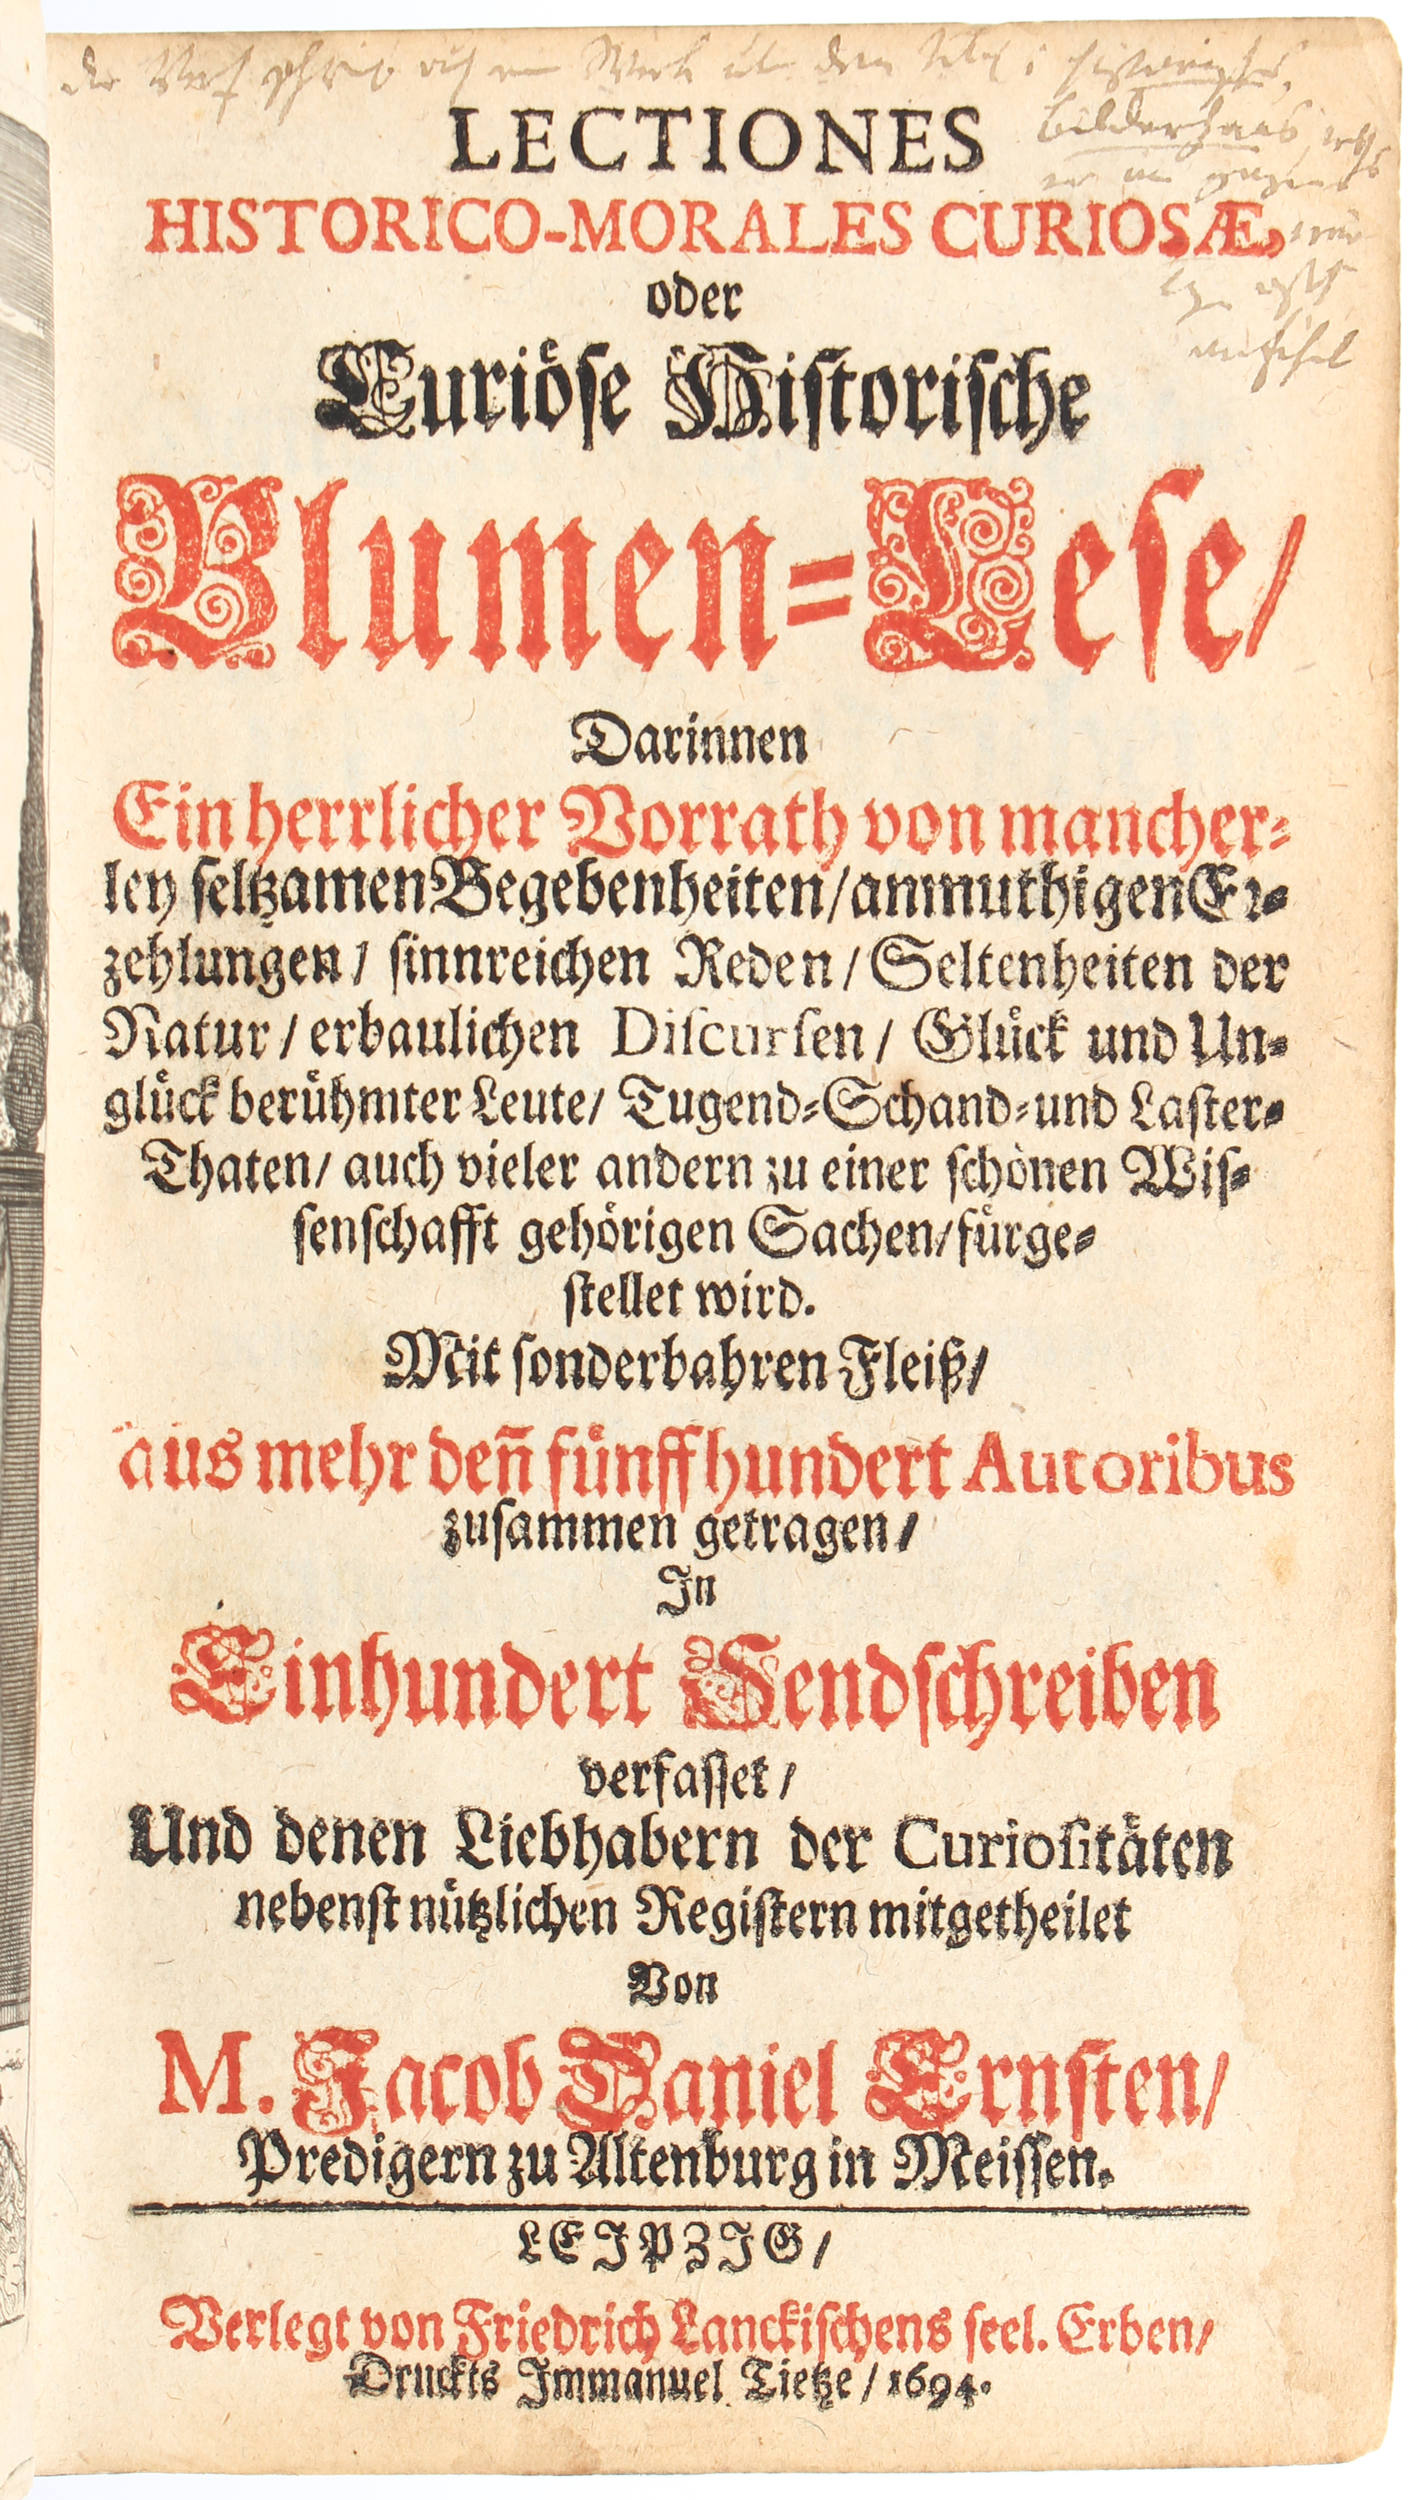 der Verf schrieb auch ein Werk über dem Titel: historisches
bilderhaus
LECTIONES
HISTORICO-MORALES CURIOSÆ,
oder
Curiöſe Hiſtoriſche
Blumen=Leſe/
Darinnen
Ein herrlicher Vorrath von mancher=
ley ſeltzamen Begebenheiten/ anmuthigen Er=
zehlungen/ ſinnreichen Reden/ Seltenheiten der
Natur/ erbaulichen Diſcurſen/ Glück und Un=
glück berühmter Leute/ Tugend=Schand=und Laſter=
Thaten/ auch vieler andern zu einer ſchönen Wiſ=
ſenſchafft gehörigen Sachen/ fürge=
ſtellet wird.
Mit ſonderbahren Fleiß/
aus mehr deñ fünffhundert Autoribus
zuſammen getragen/
In
Einhundert Sendſchreiben
verfaſſet/
Und denen Liebhabern der Curioſitäten
nebenſt nützlichen Regiſtern mitgetheilet
Von
M. Jacob Daniel Ernſten/
Predigern zu Altenburg in Meiſſen.
LEIPZIG/
Verlegt von Friedrich Lanckiſchens ſeel. Erben/
Druckts Immanuel Tietze/ 1694.